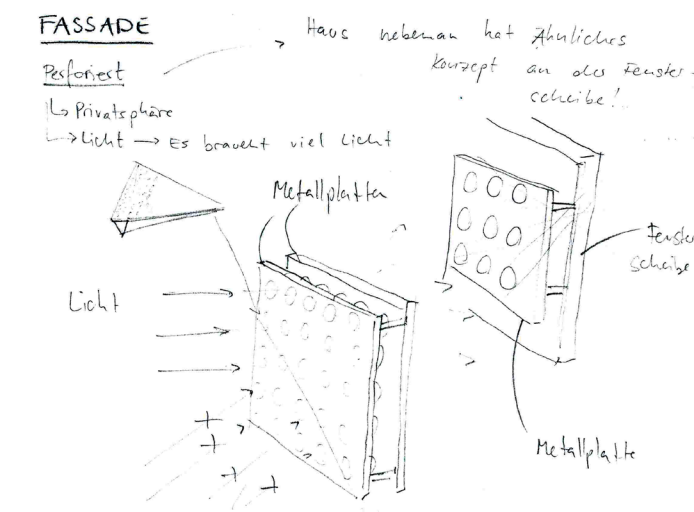 FASSADE
Perforiert
↳ Privatsphäre
→ Licht → Es braucht viel Licht
Haus nebenan hat Ähnliches
Konzept an der Fenster-
scheibe!
Metallplatten
Licht
Fenster
scheibe
Metallplatte